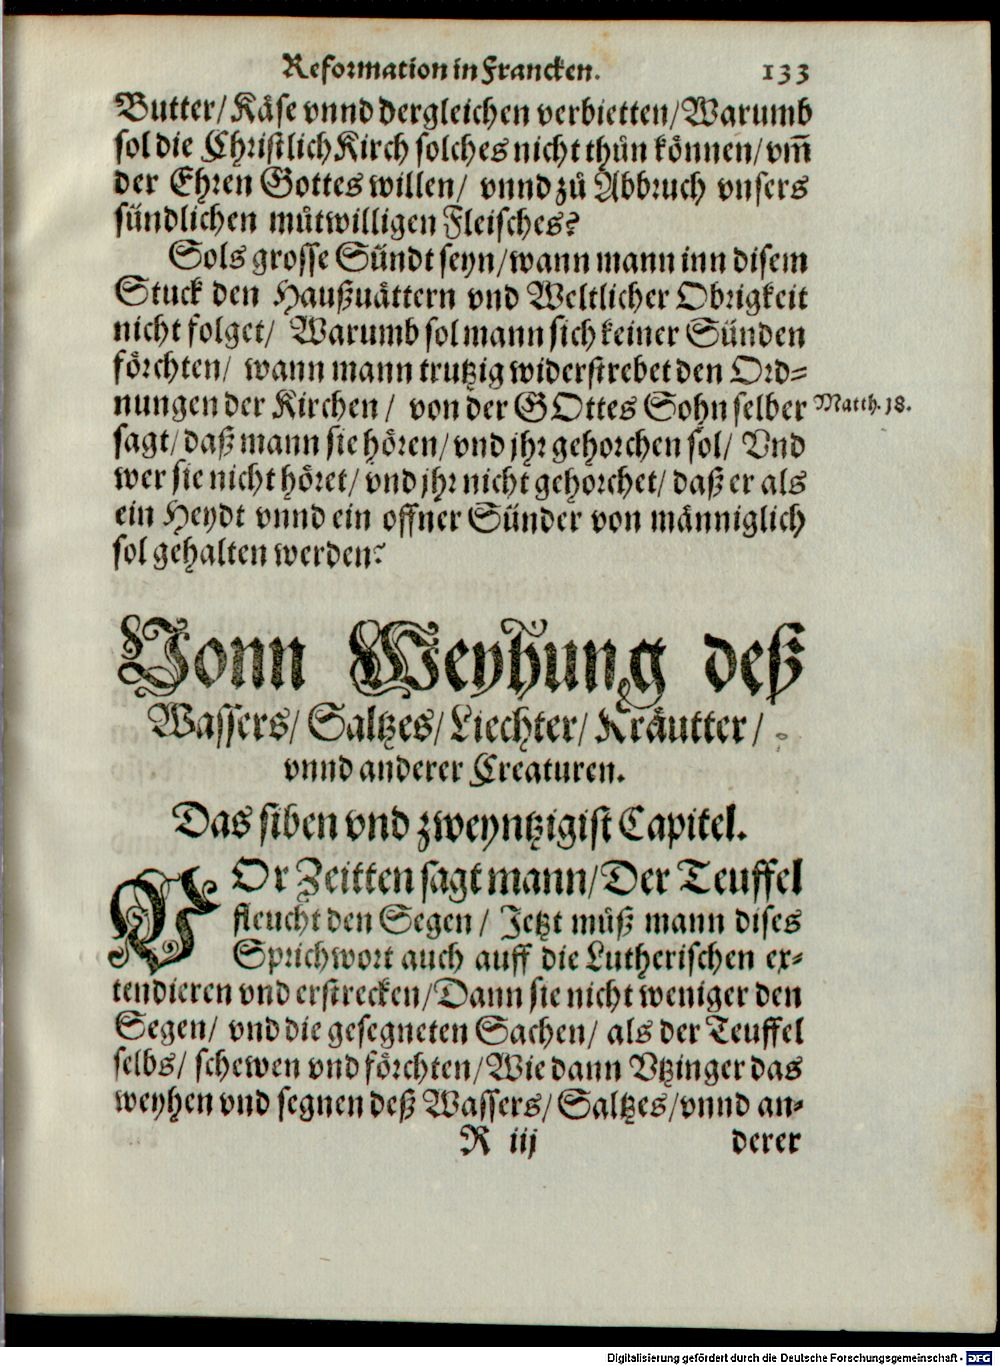 Reformation in Francken. 133
Butter/ Käse vnnd dergleichen verbietten/ Warumb
sol die Christlich Kirch solches nicht thůn können/ vm̃
der Ehren Gottes willen/ vnnd zů Abbruch vnsers
sündlichen můtwilligen Fleisches?
Sols grosse Sündt seyn/ wann mann inn disem
Stuck den Haußuättern vnd Weltlicher Obrigkeit
nicht folget/ Warumb sol mann sich keiner Sünden
förchten/ wann mann trutzig widerstrebet den Ord-
nungen der Kirchen/ von der GOttes Sohn selber Matth. 18.
sagt/ daß mann sie hören/ vnd jhr gehorchen sol/ Vnd
wer sie nicht höret/ vnd jhr nicht gehorchet/ daß er als
ein Heydt vnnd ein offner Sünder von männiglich
sol gehalten werden?
Vonn Weyhung deß
Wassers/ Saltzes/ Liechter/ Kräutter/
vnnd anderer Creaturen.
Das siben vnd zweyntzigist Capitel.
VOr Zeitten sagt mann/ Der Teuffel
fleucht den Segen/ Jetzt můß mann dises
Sprichwort auch auff die Lutherischen ex-
tendieren vnd erstrecken/ Dann sie nicht weniger den
Segen/ vnd die gesegneten Sachen/ als der Teuffel
selbs/ schewen vnd förchten/ Wie dann Vtzinger das
weyhen vnd segnen deß Wassers/ Saltzes/ vnnd an-
R iij derer
Digitalisierung gefördert durch die Deutsche Forschungsgemeinschaft - DFG